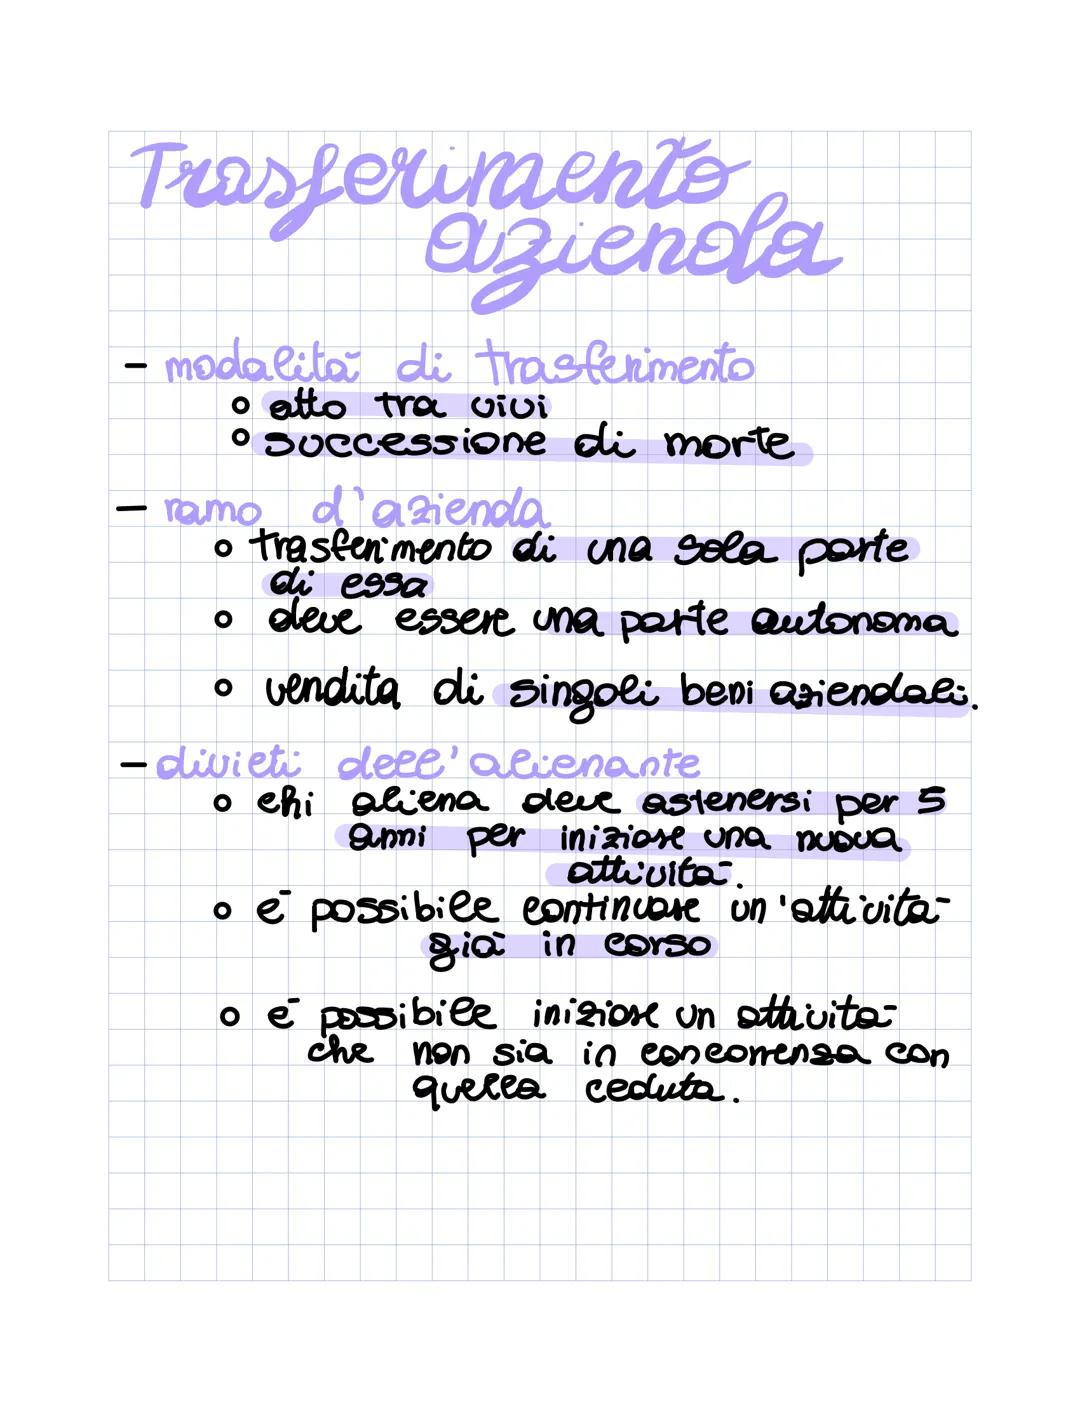 Trasferimento
azienda
- modalità di trasferimento
o atto tra vivi
o successione di morte
- ramo d'azienda
o trasferimento di una sola parte
di essa
o deve essere una parte autonoma
o vendita di singoli beni aziendali.
- divieti dell'alienante
o chi aliena deve astenersi per 5
anni per iniziare una nuova
attività.
o è possibile continuare un'attività
già in corso
o è possibile iniziare un attività
che non sia in concorrenza con
quella ceduta.